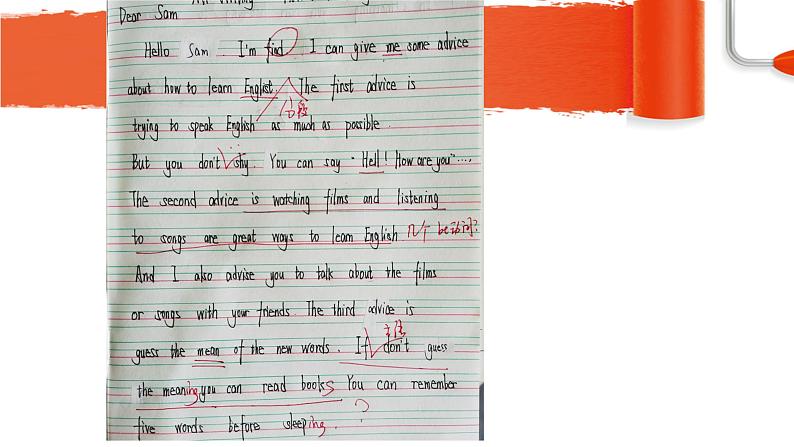 Dear Sam
Hello Sam I'm find. I can give me some advice
about how to learn Englist. The first advice is
分段
trying to speak English as much as possible.
But you don't shy. You can say "Hell! How are you"....
The second advice is watching films and listening
to songs are great ways to learn English 几个be动词?
And I also advise you to talk about the films
or songs with your friends. The third advice is
主语
guess the mean of the new words. If don't guess
the meaning you can read books You can remember
five words before sleeping. ?